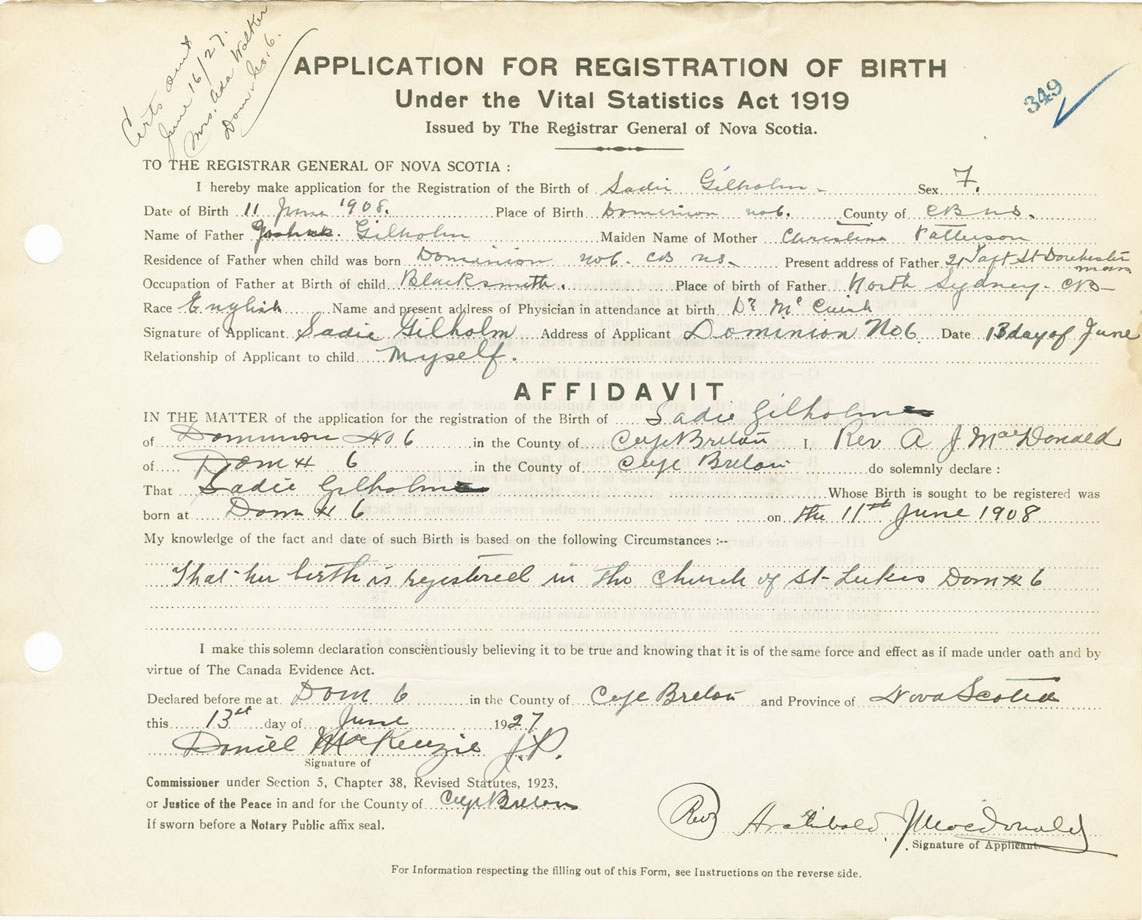 Certs sent
June 16/27.
Mrs. Ada Walker
Dom. No. 6.
APPLICATION FOR REGISTRATION OF BIRTH
Under the Vital Statistics Act 1919
Issued by The Registrar General of Nova Scotia.
349
TO THE REGISTRAR GENERAL OF NOVA SCOTIA :
I hereby make application for the Registration of the Birth of Sadie Gilholm. Sex F.
Date of Birth 11 June 1908. Place of Birth Dominion No6. County of CB NS.
Name of Father Gilholm Maiden Name of Mother Christina Patterson
Residence of Father when child was born Dominion No6. CB NS. Present address of Father 20 Taft St Dorchester Mass
Occupation of Father at Birth of child Blacksmith. Place of birth of Father North Sydney. CB
Race English Name and present address of Physician in attendance at birth Dr Mc
Signature of Applicant Sadie Gilholm Address of Applicant Dominion No6 Date 13 day of June
Relationship of Applicant to child Myself.
AFFIDAVIT
IN THE MATTER of the application for the registration of the Birth of Sadie Gilholm
of Dominion No 6 in the County of Cape Breton I, Rev A J MacDonald
of Dom # 6 in the County of Cape Breton do solemnly declare :
That Sadie Gilholm Whose Birth is sought to be registered was
born at Dom # 6 on the 11th June 1908
My knowledge of the fact and date of such Birth is based on the following Circumstances :--
That her birth is registered in the Church of St Lukes Dom # 6
I make this solemn declaration conscientiously believing it to be true and knowing that it is of the same force and effect as if made under oath and by
virtue of The Canada Evidence Act.
Declared before me at Dom 6 in the County of Cape Breton and Province of Nova Scotia
this 13th day of June 1927
Daniel McKenzie J.P.
Signature of
Commissioner under Section 5, Chapter 38, Revised Statutes, 1923,
or Justice of the Peace in and for the County of Cape Breton
If sworn before a Notary Public affix seal.
Rev Archibald J Macdonald
Signature of Applicant.
For Information respecting the filling out of this Form, see Instructions on the reverse side.